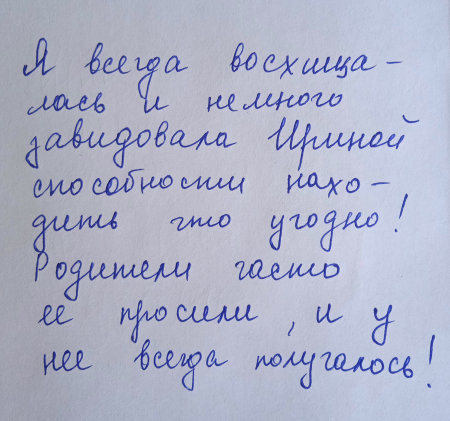 Я всегда восхища-
лась и немного
завидовала Ириной
способности нахо-
дить что угодно!
Родители часто
ее просили, и у
нее всегда получалось!